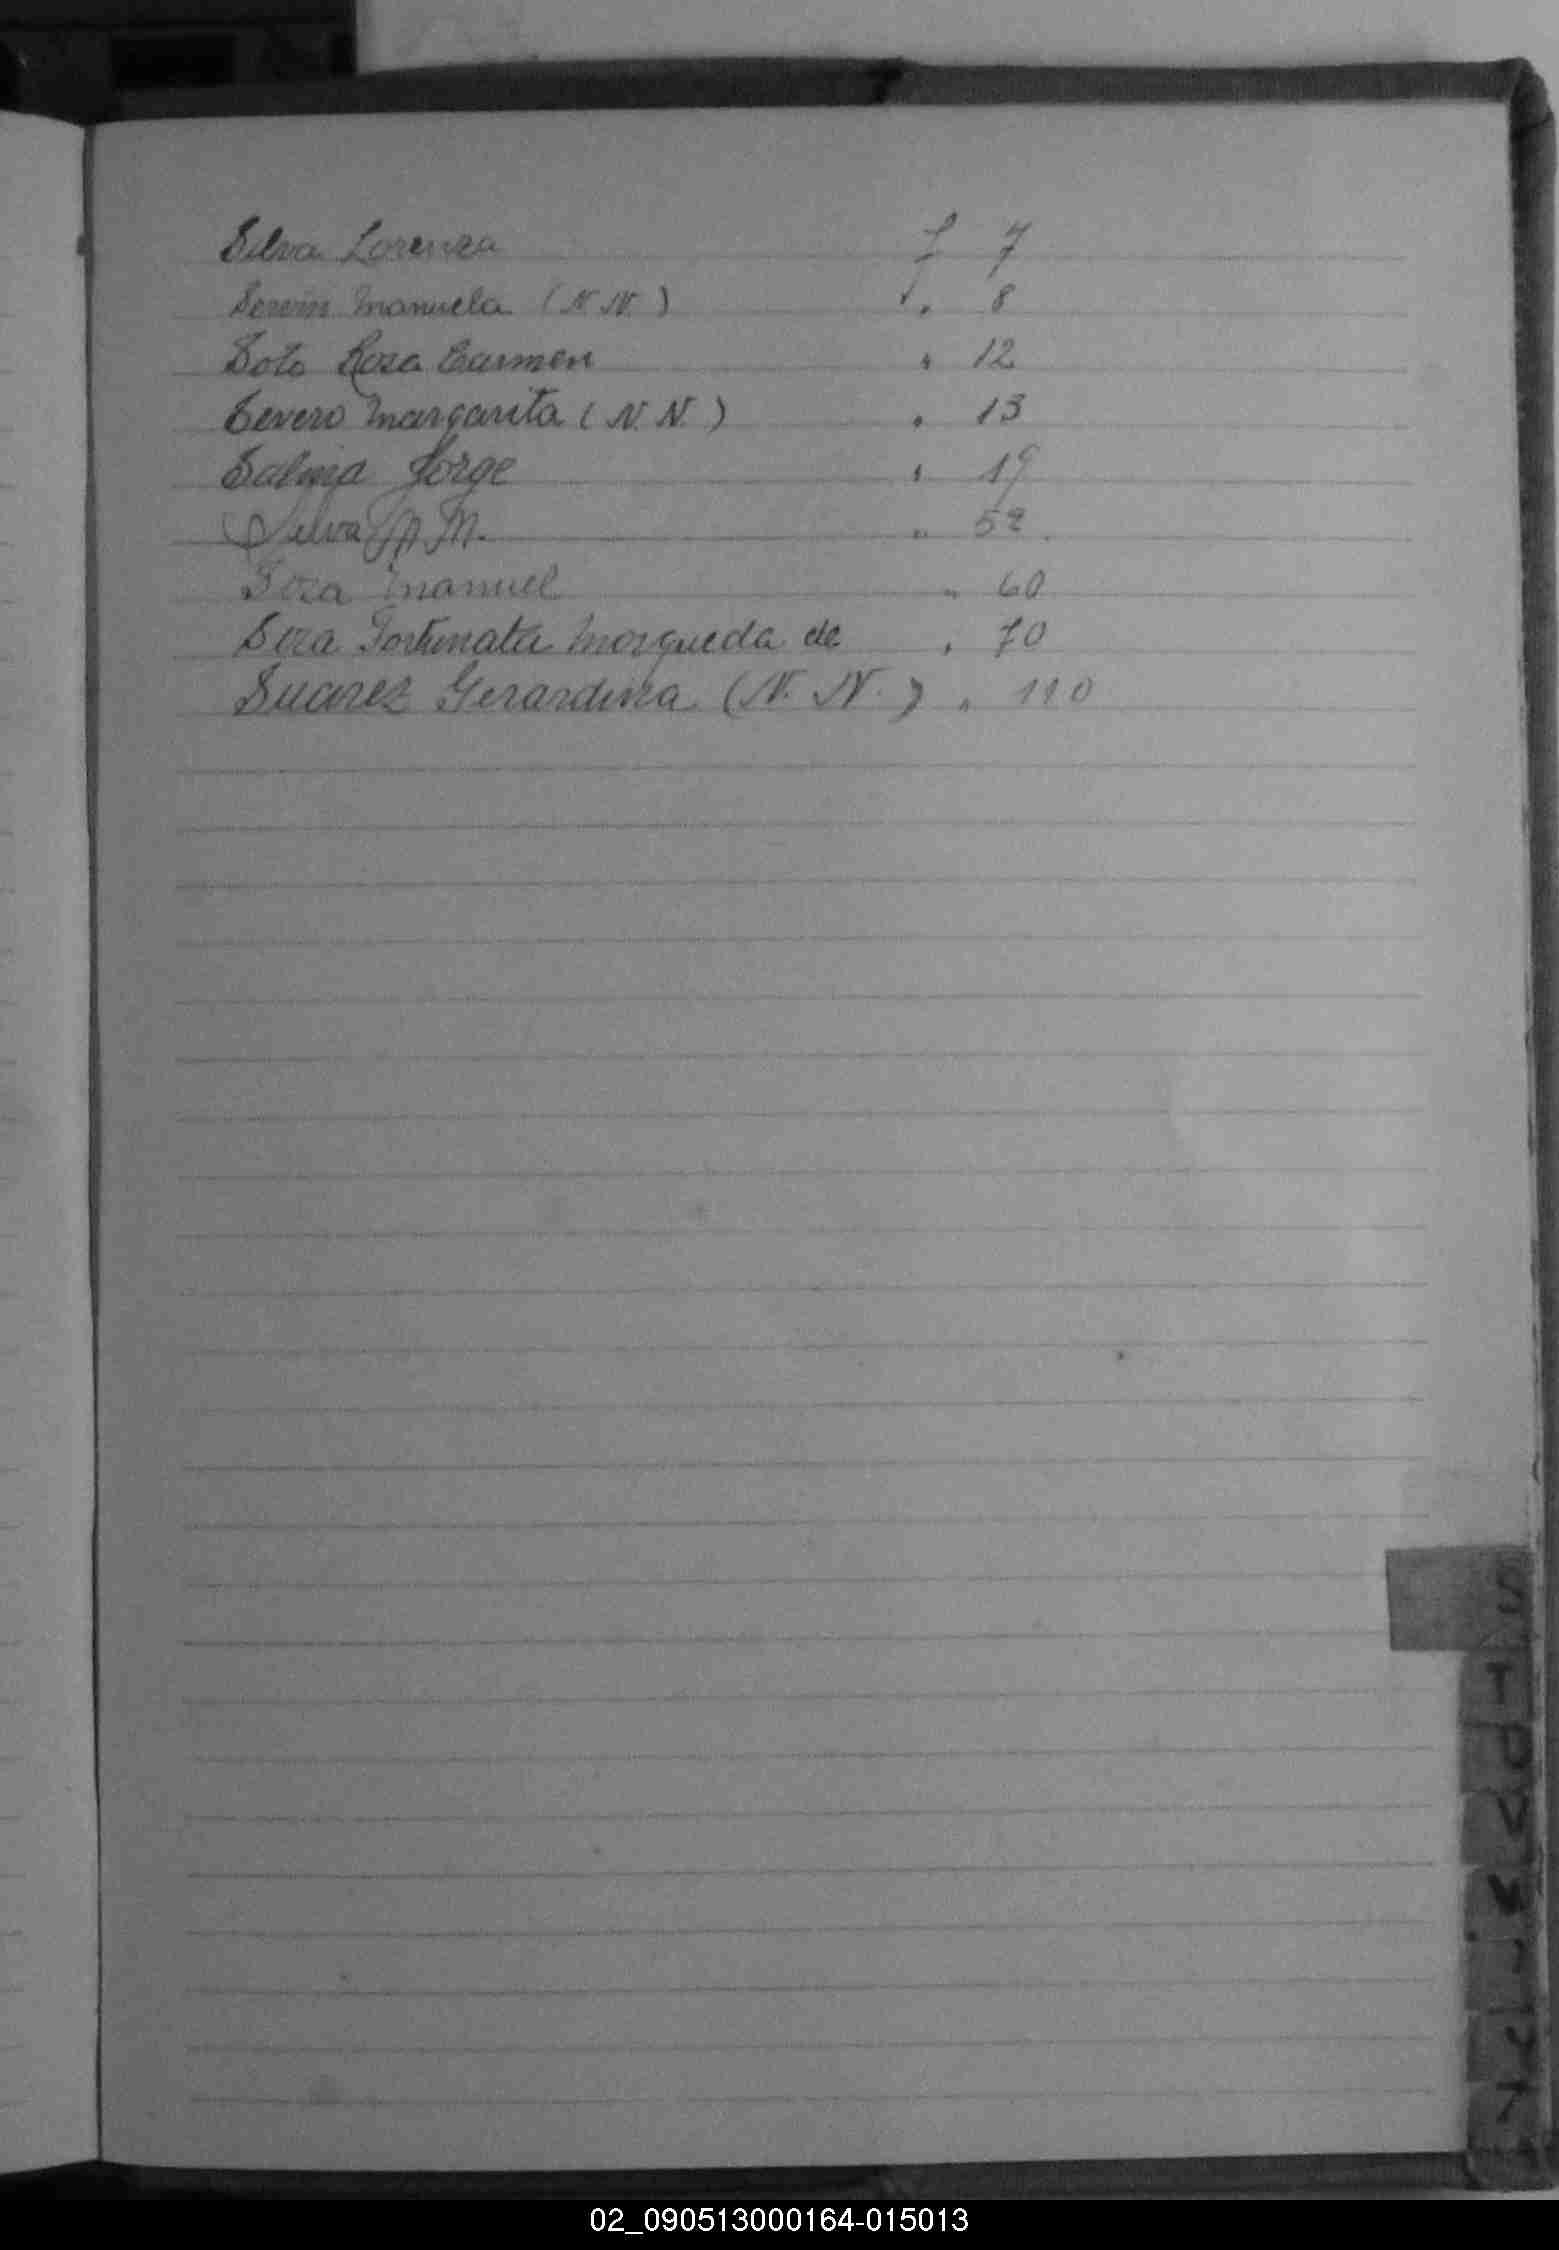 Silva Lorenza f 7
Servin Manuela (N.N.) " 8
Soto Rosa Carmen " 12
Severo Margarita (N.N.) " 13
Jorge " 19
Silva M. " 52
Sosa Manuel " 60
Sosa Fortunata Mosqueda de " 70
Suarez Gerardina (N.N.) " 110
S
T
U
V
Y
Z
02_090513000164-015013